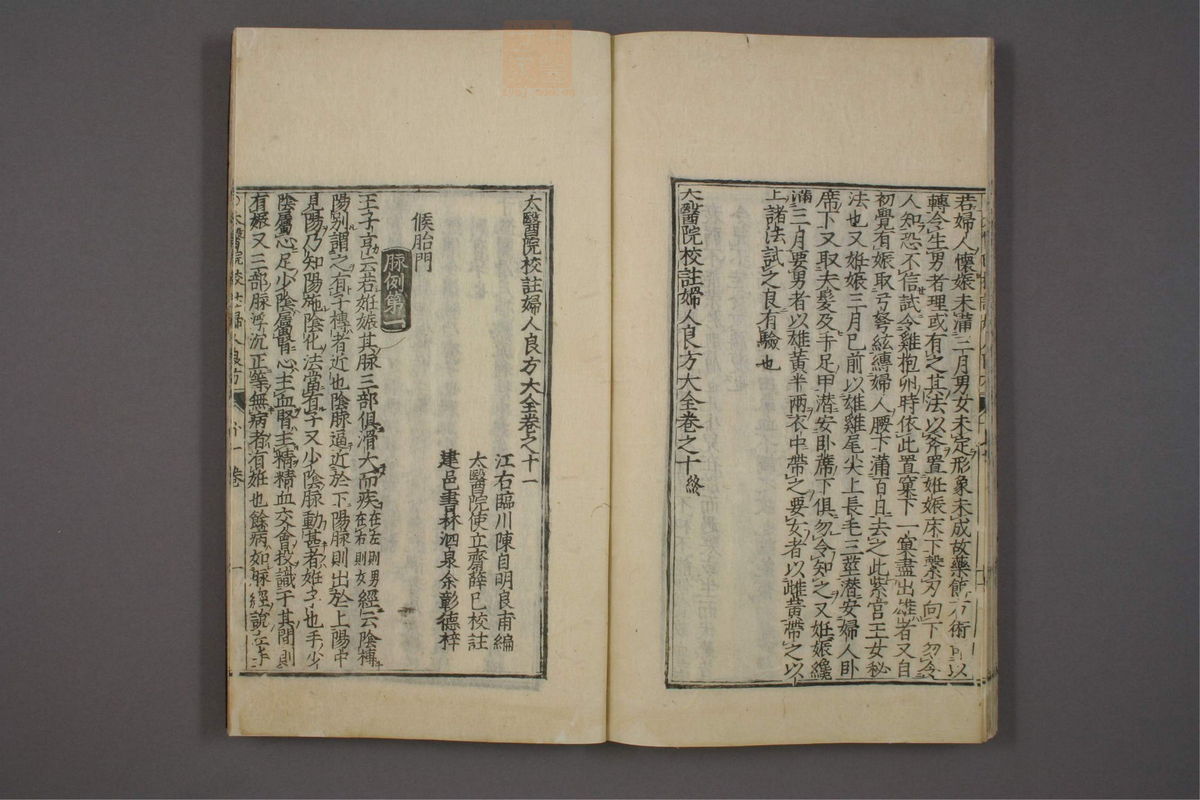 若婦人懷娠未滿三月男女未定形象未成故藥餌方術可以
轉令生男者理或有之其法以斧置妊娠床下繫刃向下勿令
人知恐不信試令雞抱卵時依此置窠下一窠盡出雄者又自
初覺有娠取弓弩絃縳婦人腰下滿百日去之此紫宮玉女秘
法也又妊娠三月已前以雄雞尾尖上長毛三莖潜安婦人卧
席下又取夫髮及手足甲潜安卧蓆下俱勿令知之又妊娠纔
滿三月要男者以雄黃半兩衣中帶之要女者以雌黃帶之以
上諸法試之良有驗也
太醫院校註婦人良方大全卷之十終
太醫院校註婦人良方大全卷之十一
江右臨川陳自明良甫編
太醫院使立齋薛已校註
建邑書林泗泉余彰德梓
候胎門
脉例第一
王子亨云若姙娠其脉三部俱滑大而疾在左則男在右則女經云陰摶
陽別謂之有子摶者近也陰脉逼近於下陽脉則出於上陽中
見陽乃知陽施陰化法當有子又少陰脉動甚者姙子也手少
陰屬心足少陰屬腎心主血腎主精精血交會投識于其間則
有娠又三部脉浮沉正等無病者有姙也餘病如脉經說在
太醫院校註婦人良方 十一卷 一